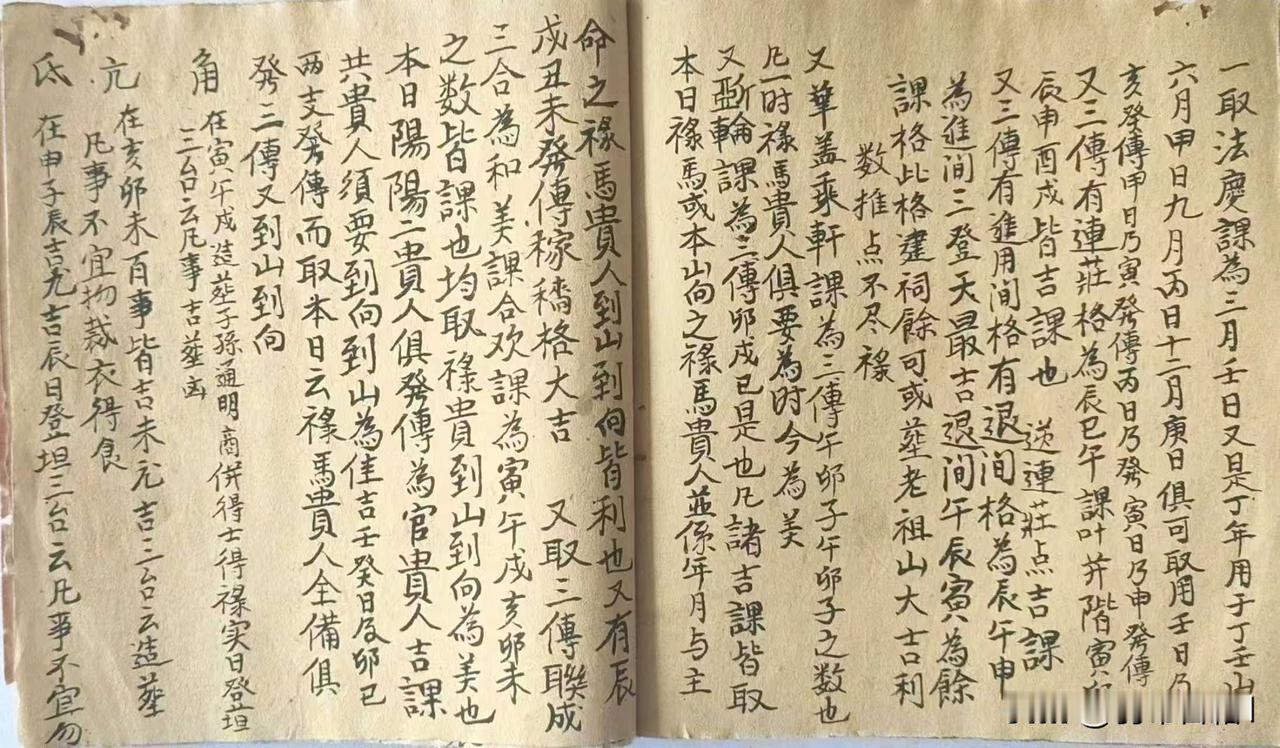 一取法慶課為三月壬日又是丁年用于丁壬山
六月甲日九月丙日十二月庚日俱可取用壬日乃
亥發傳甲日乃寅發傳丙日乃發寅日乃申發傳
又三傳有連莊格為辰巳午課叶并階寅卯
辰申酉戌皆吉課也 送連莊点吉課
又三傳有進用间格有退间格為辰午申
為進间三登天最吉退间午辰寅為餘
課格此格建祠餘可或葬老祖山大吉利
数推点不尽禄
又華盖乘軒課為三傳午卯子午卯子之数也
凡一时禄馬貴人俱要為时今為美
又斲輪課為三傳卯戌巳是也凡諸吉課皆取
本日禄馬或本山向之禄馬貴人並係年月与主
命之禄馬貴人到山到向皆利也又有辰
戌丑未發傳稼穡格大吉 又取三傳聯成
三合為和美課合欢課為寅午戌亥卯未
之数皆課也均取禄貴到山到向為美也
本日陽陽二貴人俱發傳為官貴人吉課
共貴人須要到向到山為佳吉壬癸日及卯巳
两支發傳而取本日云禄馬貴人全備俱
發三傳又到山到向
角 在寅午戌造葬子孫通明商併得士得禄实日登坦
三台云凡事吉葬凶
亢 在亥卯未百事皆吉未元吉三台云造葬
凡事不宜物裁衣得食
氐 在申子辰吉尤吉辰日登坦三台云凡事不宜勿